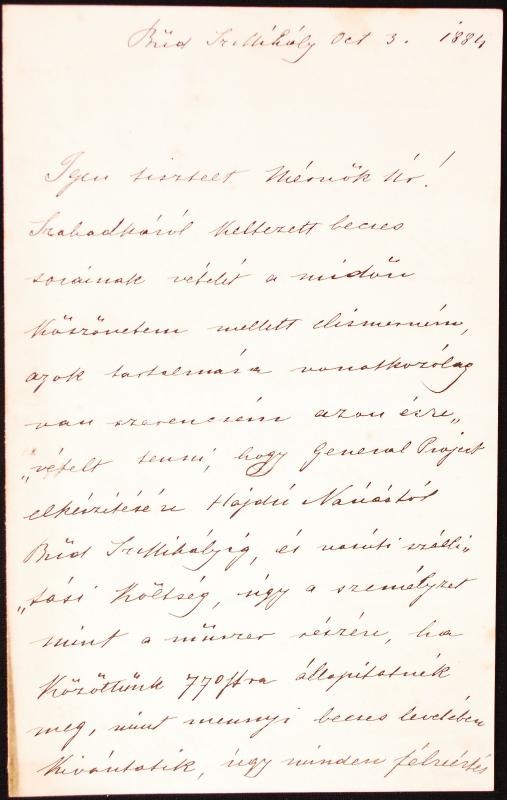 Büd Sz Mihály Oct 3. 1884
Igen tisztelt Mérnök Úr!
Szabadkáról keltezett becses
sorainak vételét a midőn
köszönetem mellett elismerném,
azok tartalmára vonatkozólag
van szerencsém azon észre„
„vételt tenni, hogy General Project
elkészítésére Hajdú Nánástól
Büd Sz Mihályig, és vasúti szálli„
„tási költség, úgy a személyzet
mint a műszer részére, ha
közöttünk 770 ftra állapítatnék
meg, mint mennyi becses levelében
kivántatik, úgy minden félreértés